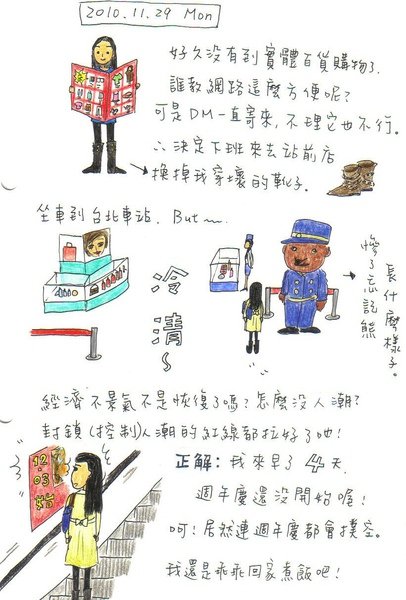 2010.11.29 Mon
好久沒有到實體百貨購物了.
誰教網路這麼方便呢?
可是DM一直寄來,不理它也不行.
∴決定下班來去站前店
換掉我穿壞的靴子.
坐車到台北車站. But~
冷清~
慘了忘記熊
長什麼樣子。
經濟不景氣不是恢復了嗎?怎麼沒人潮?
封鎖(控制)人潮的紅線都拉好了吔!
12
03
始
正解:我來早了4天.
週年慶還沒開始啥!
呵!居然連週年慶都會撲空。
我還是乖乖回家煮飯吧!